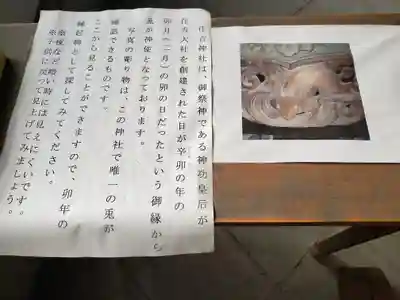 住吉神社は、御祭神である神功皇后が
住吉大社を創建された日が辛卯の年の
卯月（二月）の卯の日だったという御縁から
兎が神使となっております。
写真の彫り物は、この神社で唯一の兎が
確認できるものです。
ここから見ることができますので、卯年の
縁起物として探してみてください。
夜など暗い時には見えにくいです。
て見上げてみましょう。